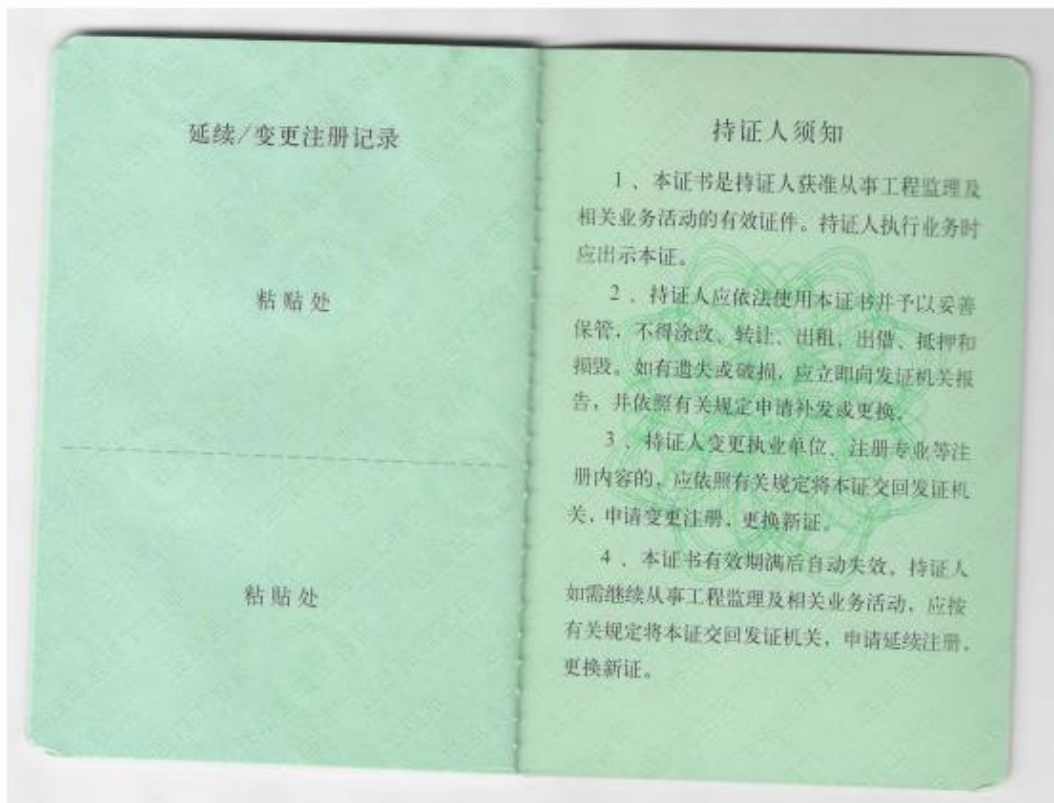 延续/变更注册记录
粘贴处
粘贴处
持证人须知
1、本证书是持证人获准从事工程监理及
相关业务活动的有效证件。持证人执行业务时
应出示本证。
2、持证人应依法使用本证书并予以妥善
保管，不得涂改、转让、出租、出借、抵押和
损毁。如有遗失或破损，应立即向发证机关报
告，并依照有关规定申请补发或更换。
3、持证人变更执业单位、注册专业等注
册内容的，应依照有关规定将本证交回发证机
关，申请变更注册，更换新证。
4、本证书有效期满后自动失效，持证人
如需继续从事工程监理及相关业务活动，应按
有关规定将本证交回发证机关，申请延续注册，
更换新证。